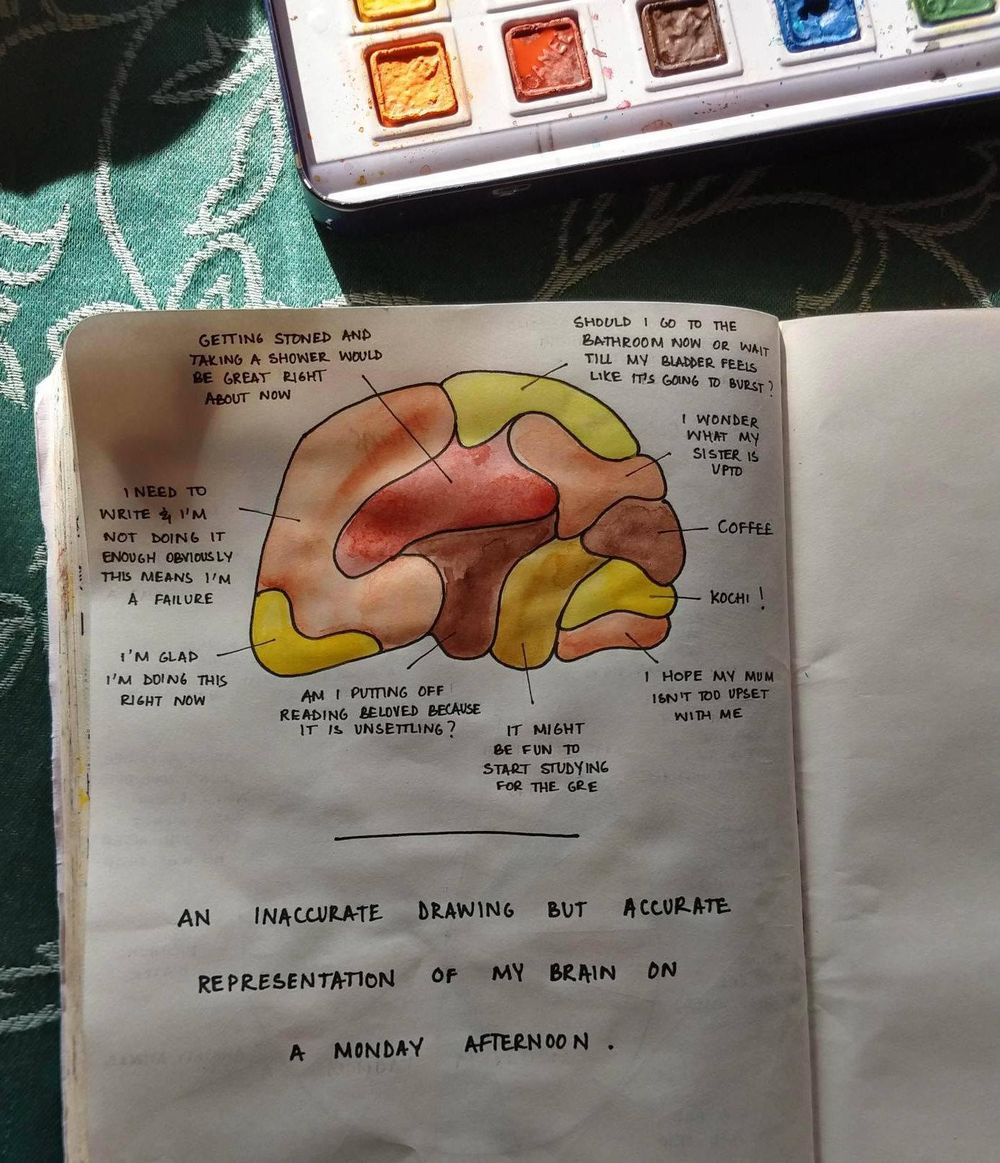 GETTING STONED AND
TAKING A SHOWER WOULD
BE GREAT RIGHT
ABOUT NOW
SHOULD I GO TO THE
BATHROOM NOW OR WAIT
TILL MY BLADDER FEELS
LIKE IT'S GOING TO BURST?
I WONDER
WHAT MY
SISTER IS
UPTO
I NEED TO
WRITE & I'M
NOT DOING IT
ENOUGH OBVIOUSLY
THIS MEANS I'M
A FAILURE
COFFEE
KOCHI!
I'M GLAD
I'M DOING THIS
RIGHT NOW
AM I PUTTING OFF
READING BELOVED BECAUSE
IT IS UNSETTLING?
IT MIGHT
BE FUN TO
START STUDYING
FOR THE GRE
I HOPE MY MUM
ISN'T TOO UPSET
WITH ME
AN INACCURATE DRAWING BUT ACCURATE
REPRESENTATION OF MY BRAIN ON
A MONDAY AFTERNOON.